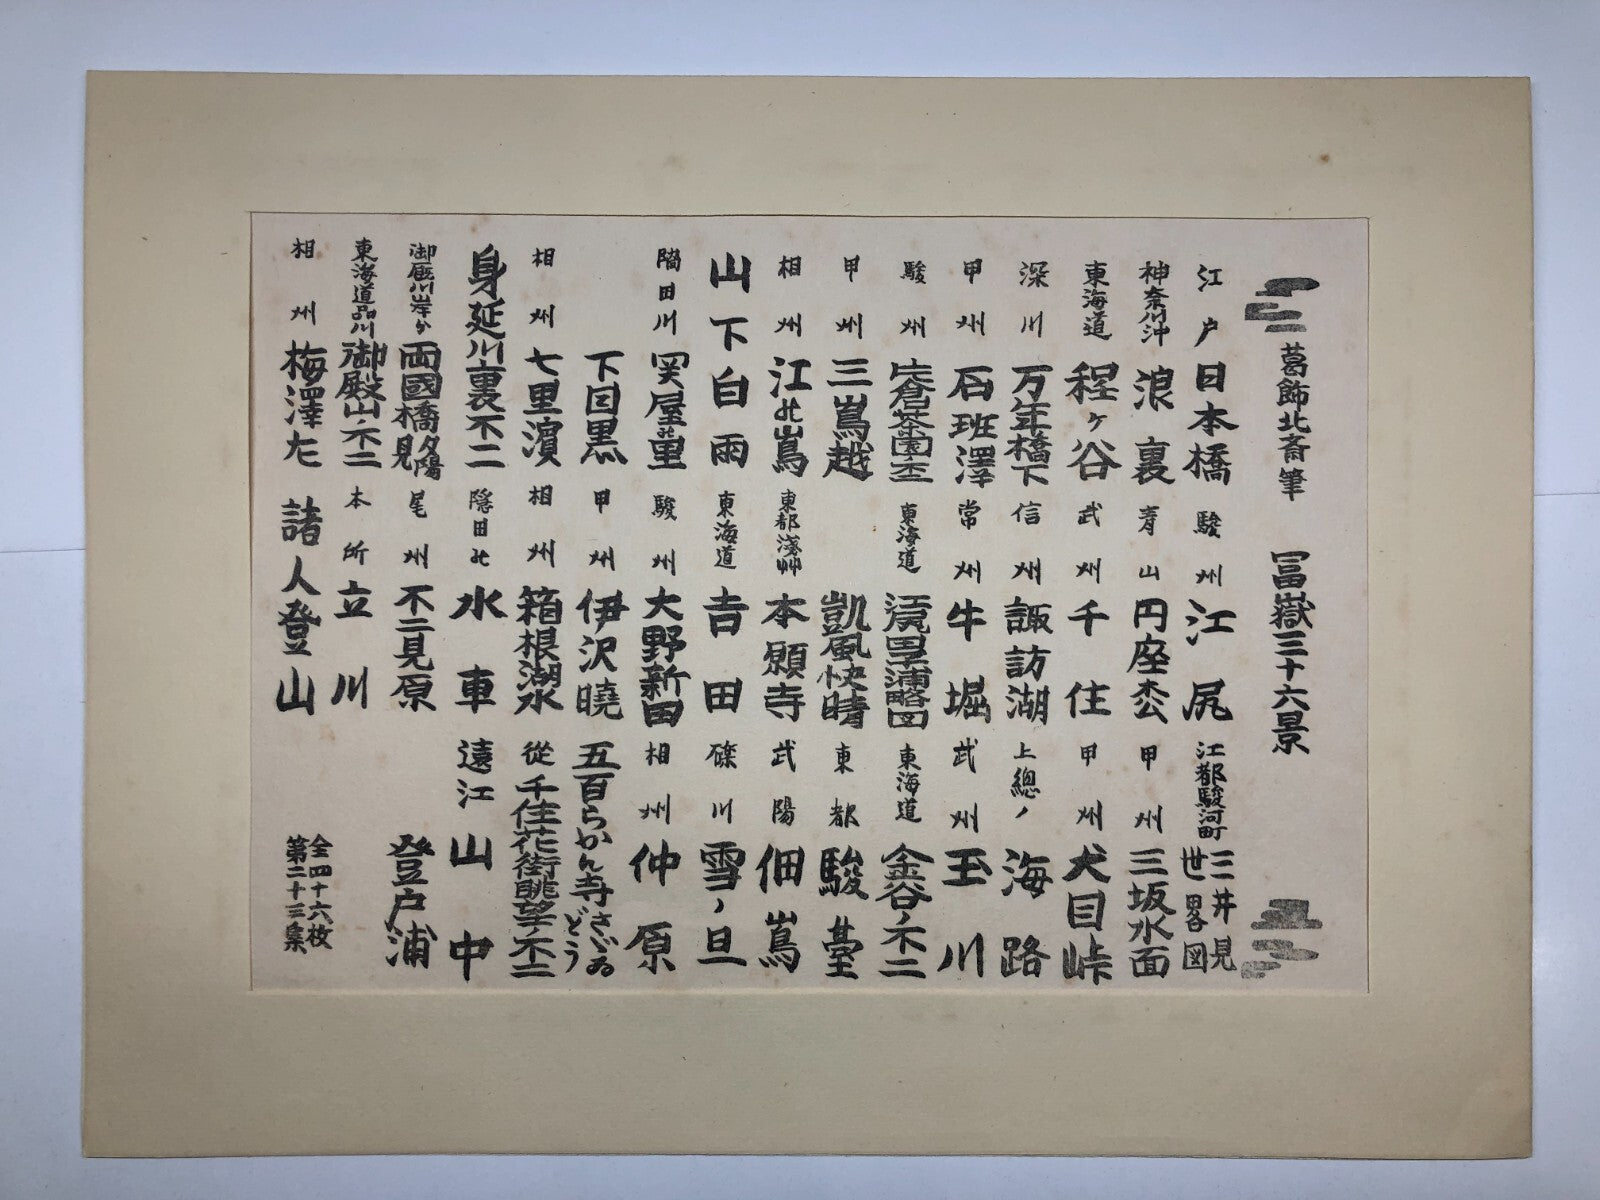 葛飾北斎筆 冨嶽三十六景
江戸 日本橋
駿州 江尻
江都駿河町 三井見世畧図
神奈川沖 浪裏
青山 円座枩
甲州 三坂水面
東海道 程ヶ谷
武州 千住
甲州 犬目峠
深川 万年橋下
信州 諏訪湖
上總ノ 海路
甲州 石班澤
常州 牛堀
武州 玉川
駿州 片倉茶園ノ不二
東海道 江尻田子浦略図
東海道 金谷ノ不二
甲州 三嶌越
凱風快晴
東都 駿臺
相州 江の嶌
東都淺艸 本願寺
武陽 佃嶌
山下白雨
東海道 吉田
礫川 雪ノ旦
隅田川 関屋の里
駿州 大野新田
相州 仲原
下目黒
甲州 伊沢曉
五百らかん寺さゞゐどう
相州 七里濱
相州 箱根湖水
従千住花街眺望ノ不二
身延川裏不二
隠田の 水車
遠江 山中
御厩川岸ゟ 両國橋夕陽見
尾州 不二見原
登戸浦
東海道品川 御殿山ノ不二
本所 立川
相州 梅澤左
諸人登山
全四十六枚
第二十三集